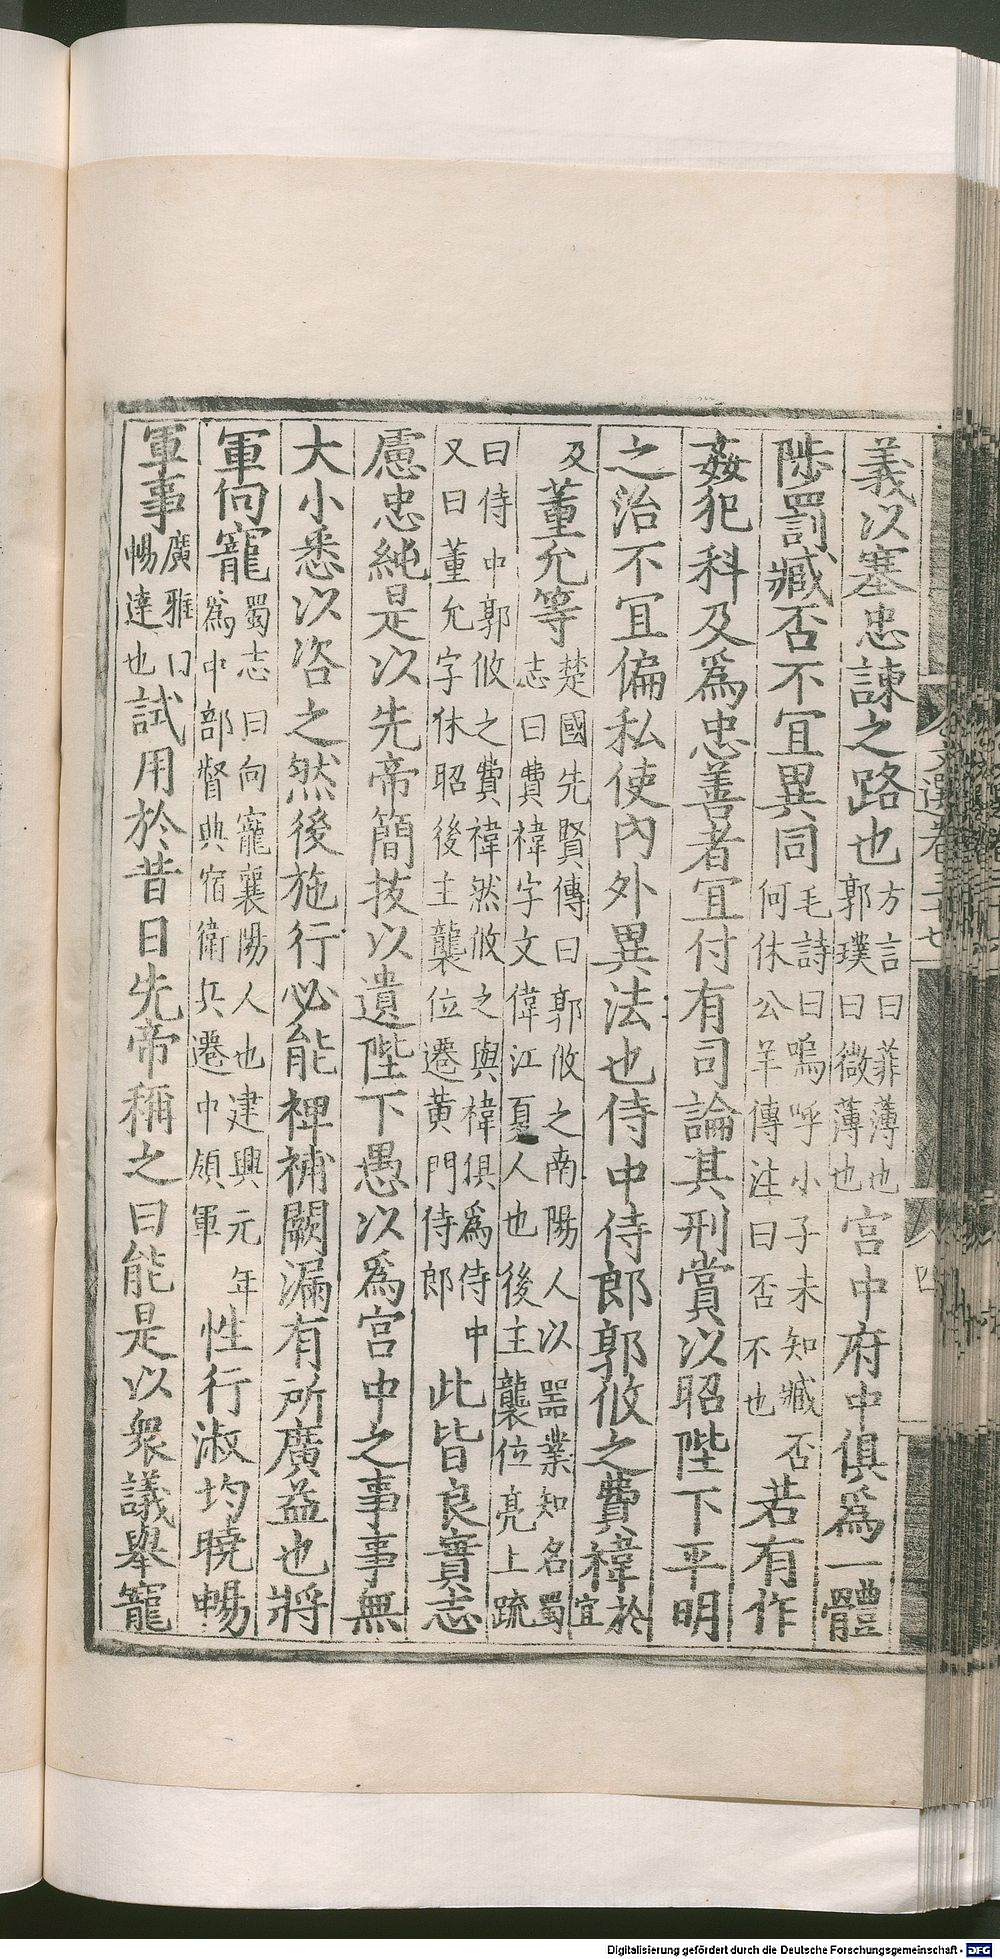 義以塞忠諫之路也方言曰菲薄也郭璞曰微薄也宮中府中俱爲一體
陟罰臧否不宜異同毛詩曰嗚呼小子未知臧否何休公羊傳注曰否不也若有作
姦犯科及爲忠善者宜付有司論其刑賞以昭陛下平明
之治不宜偏私使內外異法也侍中侍郎郭攸之費禕於宜
反董允等楚國先賢傳曰郭攸之南陽人以器業知名蜀志曰費禕字文偉江夏人也後主襲位亮上疏
曰侍中郭攸之費禕然攸之與禕俱爲侍中又曰董允字休昭後主襲位遷黃門侍郎此皆良實志
慮忠純是以先帝簡拔以遺陛下愚以爲宮中之事事無
大小悉以咨之然後施行必能裨補闕漏有所廣益也將
軍向寵蜀志曰向寵襄陽人也建興元年爲中部督典宿衛兵遷中領軍性行淑均曉暢
軍事廣雅曰暢達也試用於昔日先帝稱之曰能是以衆議舉寵
文選卷三十七
四
Digitalisierung gefördert durch die Deutsche Forschungsgemeinschaft - DFG